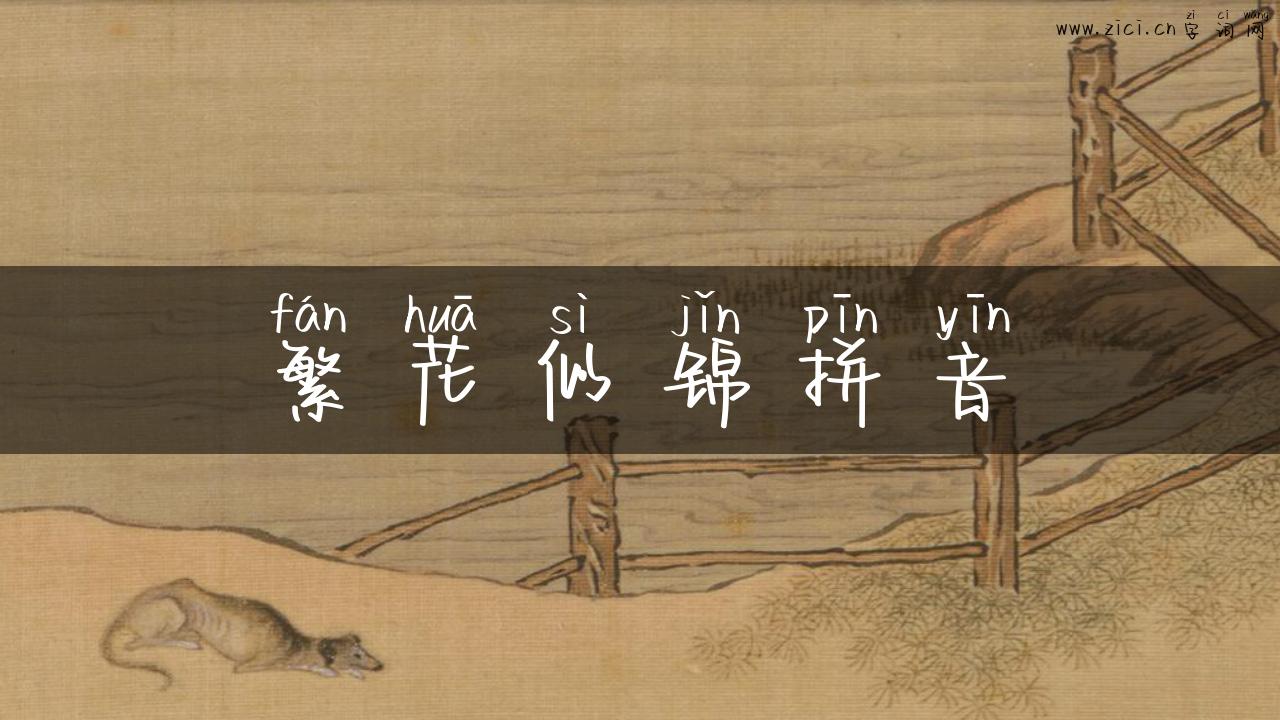 zì cí wǎng
www.zici.cn 字词网
fán huā sì jǐn pīn yīn
繁花似锦拼音